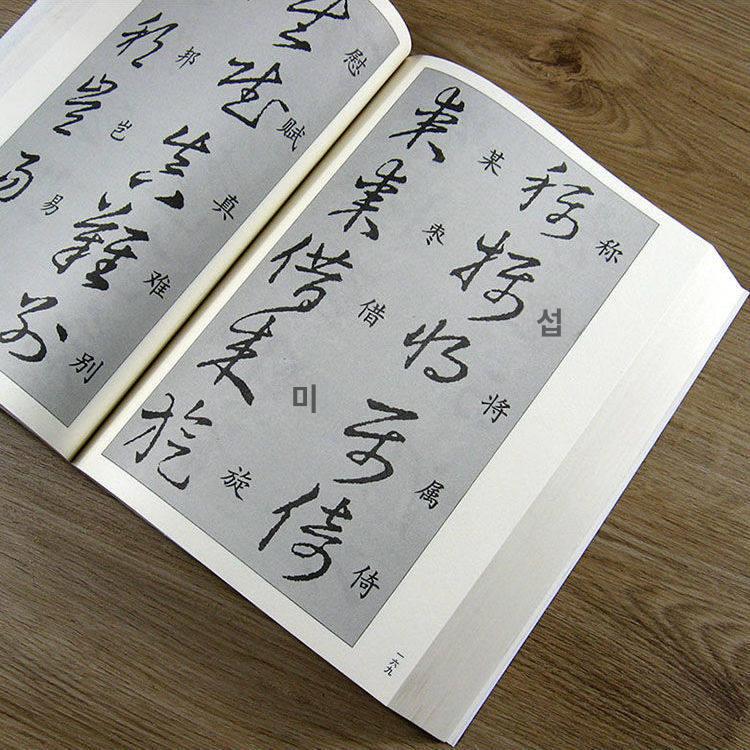 称
섭
将
属
倚
某
枣
借
미
旋
一六九
慰
赋
真
难
别
邦
岂
易